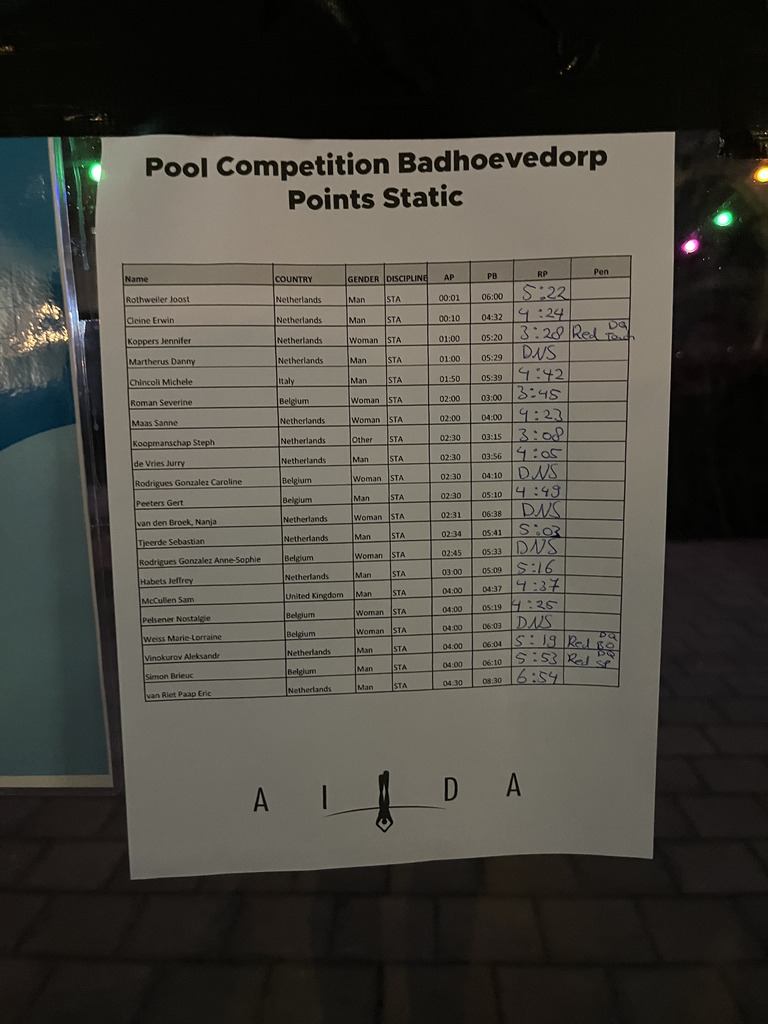 Pool Competition Badhoevedorp
Points Static
Name COUNTRY GENDER DISCIPLINE AP PB RP Pen
Rothweiler Joost Netherlands Man STA 00:01 06:00 5:22
Cleine Erwin Netherlands Man STA 00:10 04:32 4:24
Koppers Jennifer Netherlands Woman STA 01:00 05:20 3:28 Red DQ Touch
Martherus Danny Netherlands Man STA 01:00 05:29 DNS
Chincoli Michele Italy Man STA 01:50 05:39 4:42
Roman Severine Belgium Woman STA 02:00 03:00 3:45
Maas Sanne Netherlands Woman STA 02:00 04:00 4:23
Koopmanschap Steph Netherlands Other STA 02:30 03:15 3:08
de Vries Jurry Netherlands Man STA 02:30 03:56 4:05
Rodrigues Gonzalez Caroline Belgium Woman STA 02:30 04:10 DNS
Peeters Gert Belgium Man STA 02:30 05:10 4:49
van den Broek, Nanja Netherlands Woman STA 02:31 06:38 DNS
Tjeerde Sebastian Netherlands Man STA 02:34 05:41 5:03
Rodrigues Gonzalez Anne-Sophie Belgium Woman STA 02:45 05:33 DNS
Habets Jeffrey Netherlands Man STA 03:00 05:09 5:16
McCullen Sam United Kingdom Man STA 04:00 04:37 4:37
Pelsener Nostalgie Belgium Woman STA 04:00 05:19 4:25
Weiss Marie-Lorraine Belgium Woman STA 04:00 06:03 DNS
Vinokurov Aleksandr Netherlands Man STA 04:00 06:04 5:19 Red DQ BO
Simon Brieuc Belgium Man STA 04:00 06:10 5:53 Red DQ SP
van Riet Paap Eric Netherlands Man STA 04:30 08:30 6:54
A I D A